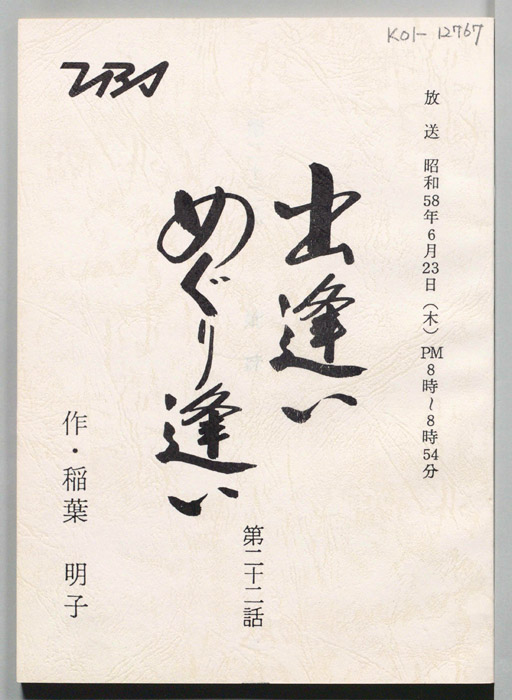 K01-12767
TBS
放送　昭和58年6月23日（木）PM8時〜8時54分
出逢い
めぐり逢い
第二十二話
作・稲葉　明子